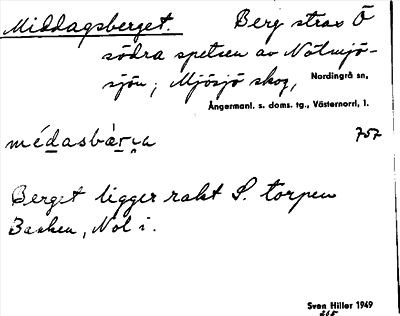 Middagsberget. Berg strax Ö
södra spetsen av Nätmjö-
sjön; Mjösjö skog, Nordingrå sn,
Ångermanl. s. doms. tg., Västernorrl, l.
médasbàr̯ya 757
Berget ligger rakt S. torpen
Backen, Nol i.
Sven Hiller 1949